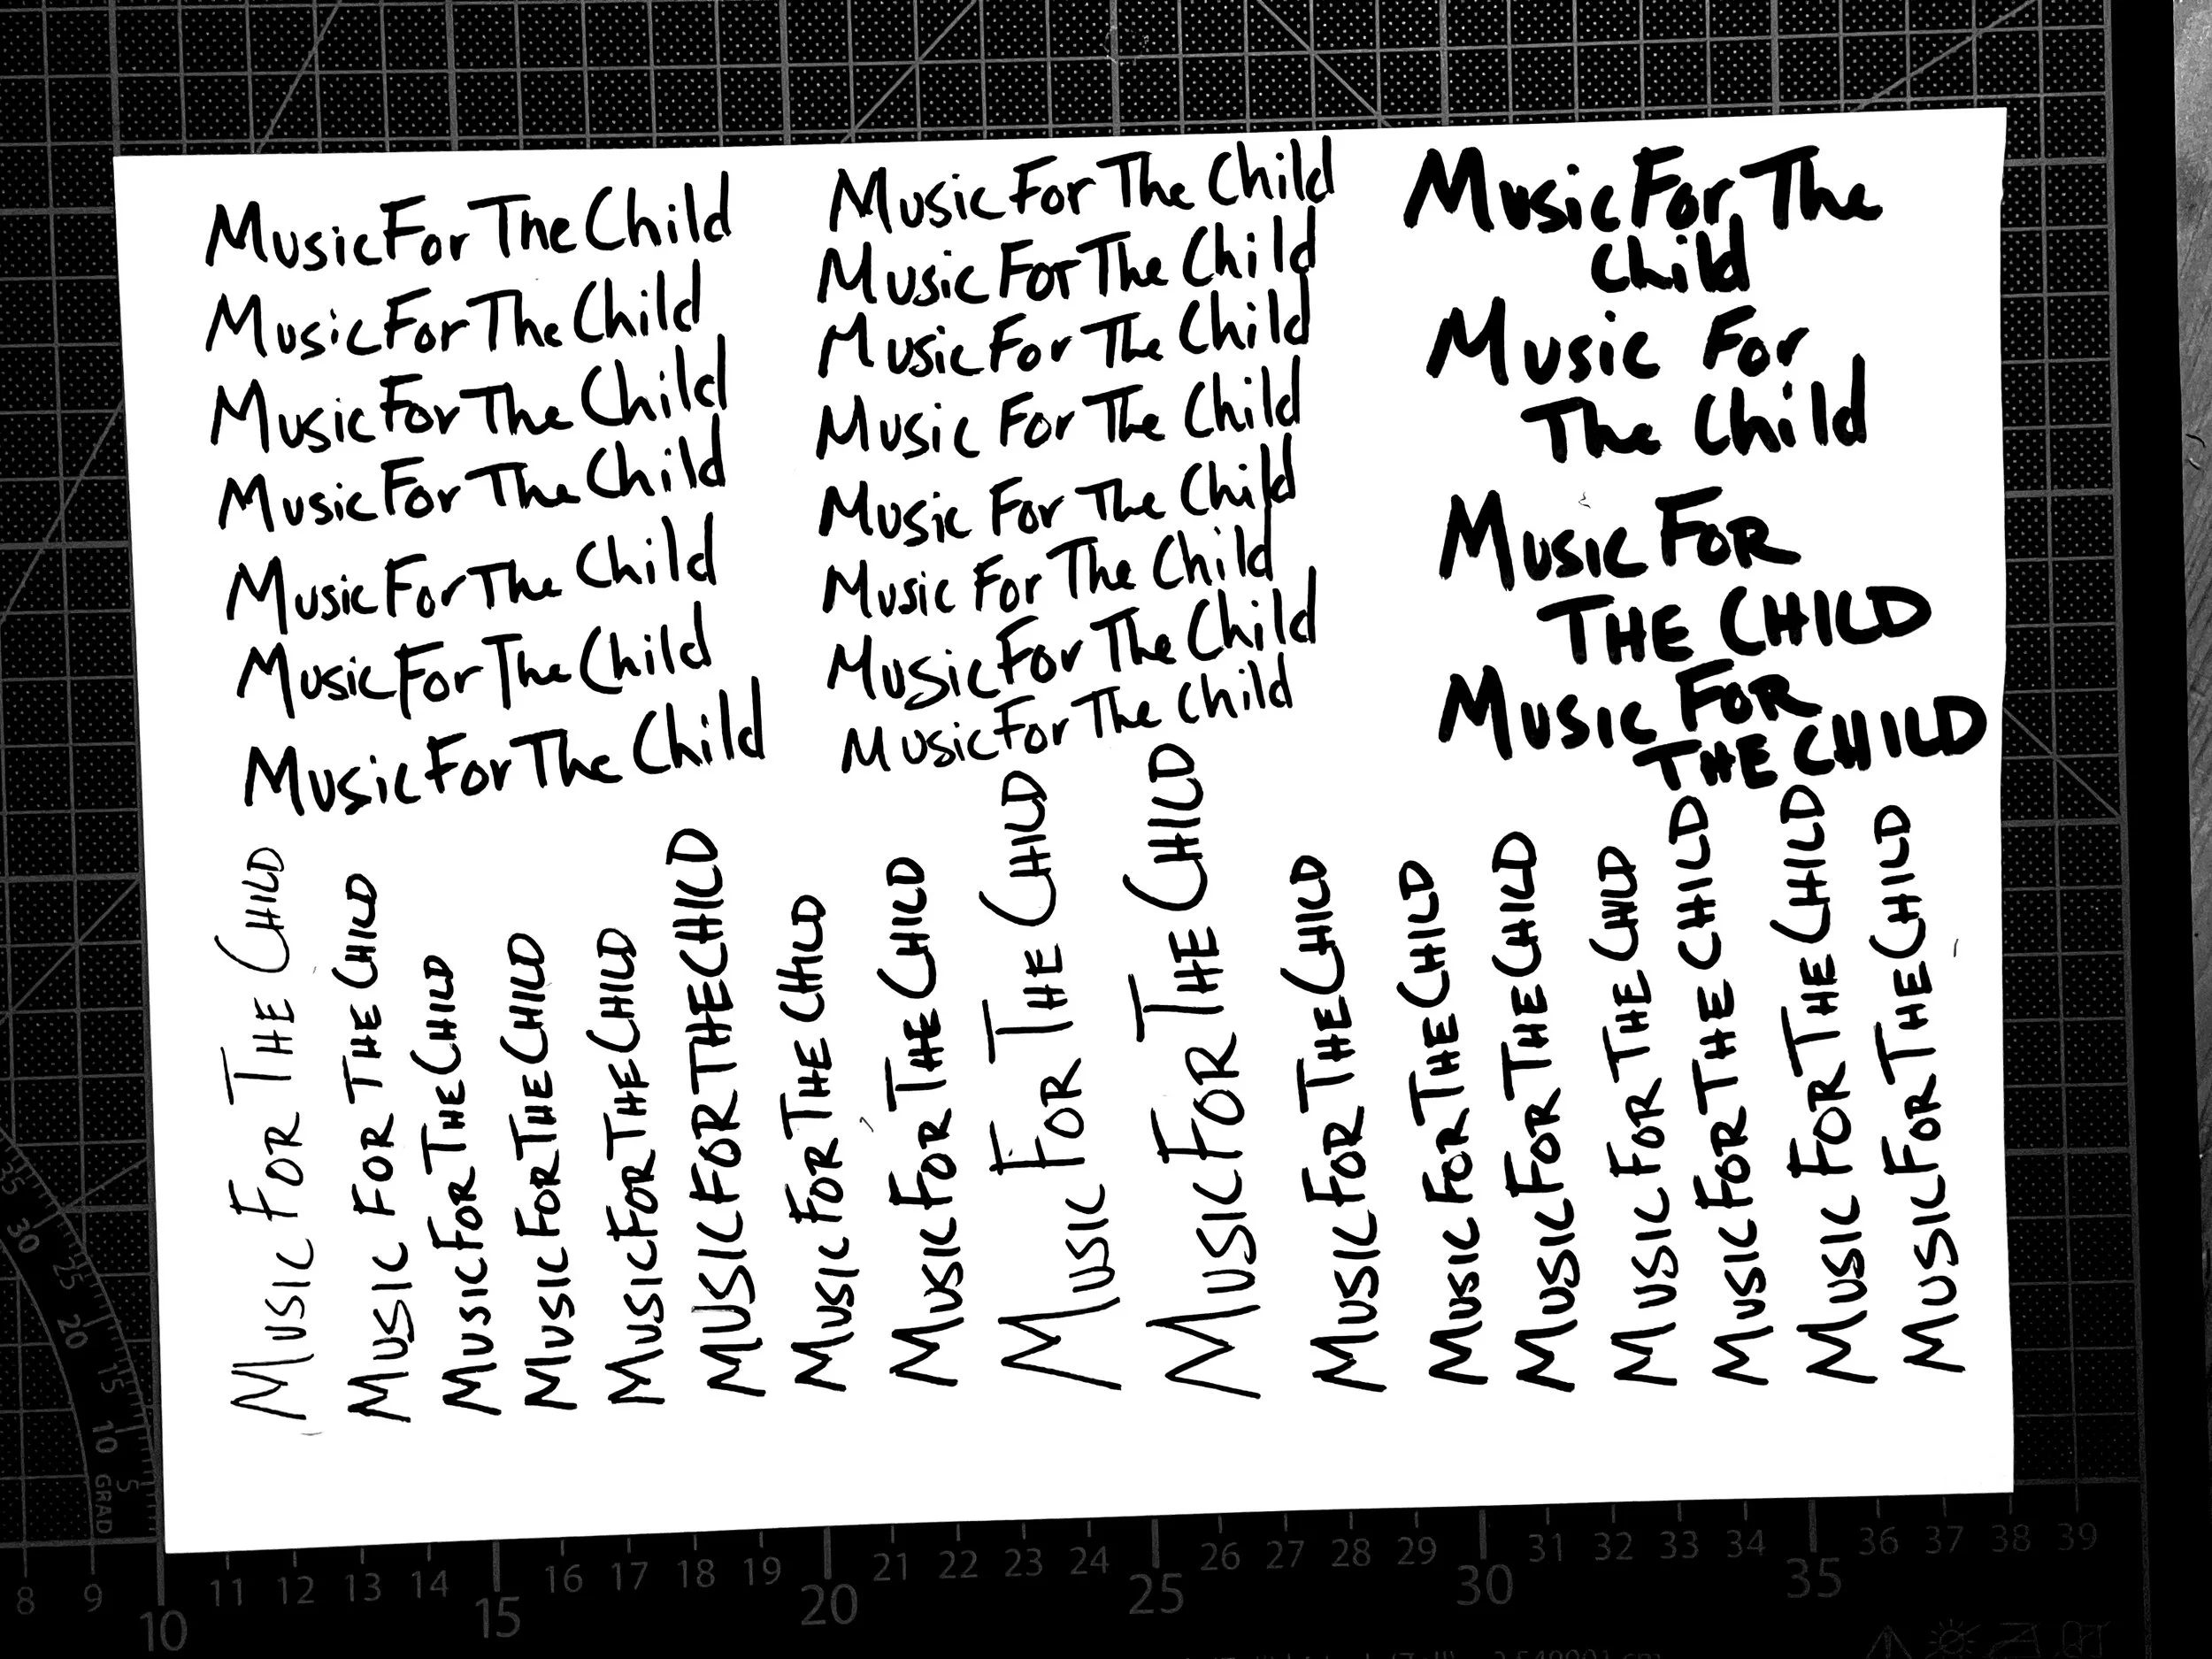 Music For The Child
Music For The Child
Music For The Child
Music For The Child
Music For The Child
Music For The Child
Music For The Child
Music For The Child
Music For The Child
Music For The Child
Music For The Child
Music For The Child
Music For The Child
Music For The Child
Music For The Child
Music For The
Child
Music For
The Child
MUSIC FOR
THE CHILD
MUSIC FOR
THE CHILD
MUSIC FOR THE CHILD
MUSIC FOR THE CHILD
MUSIC FOR THE CHILD
MUSIC FOR THE CHILD
MUSIC FOR THE CHILD
MUSIC FOR THE CHILD
MUSIC FOR THE CHILD
MUSIC FOR THE CHILD
MUSIC FOR THE CHILD
MUSIC FOR THE CHILD
MUSIC FOR THE CHILD
MUSIC FOR THE CHILD
MUSIC FOR THE CHILD
MUSIC FOR THE CHILD
MUSIC FOR THE CHILD
MUSIC FOR THE CHILD
MUSIC FOR THE CHILD
35
30
25
20
15
10
5
GRAD
8 9 10 11 12 13 14 15 16 17 18 19 20 21 22 23 24 25 26 27 28 29 30 31 32 33 34 35 36 37 38 39